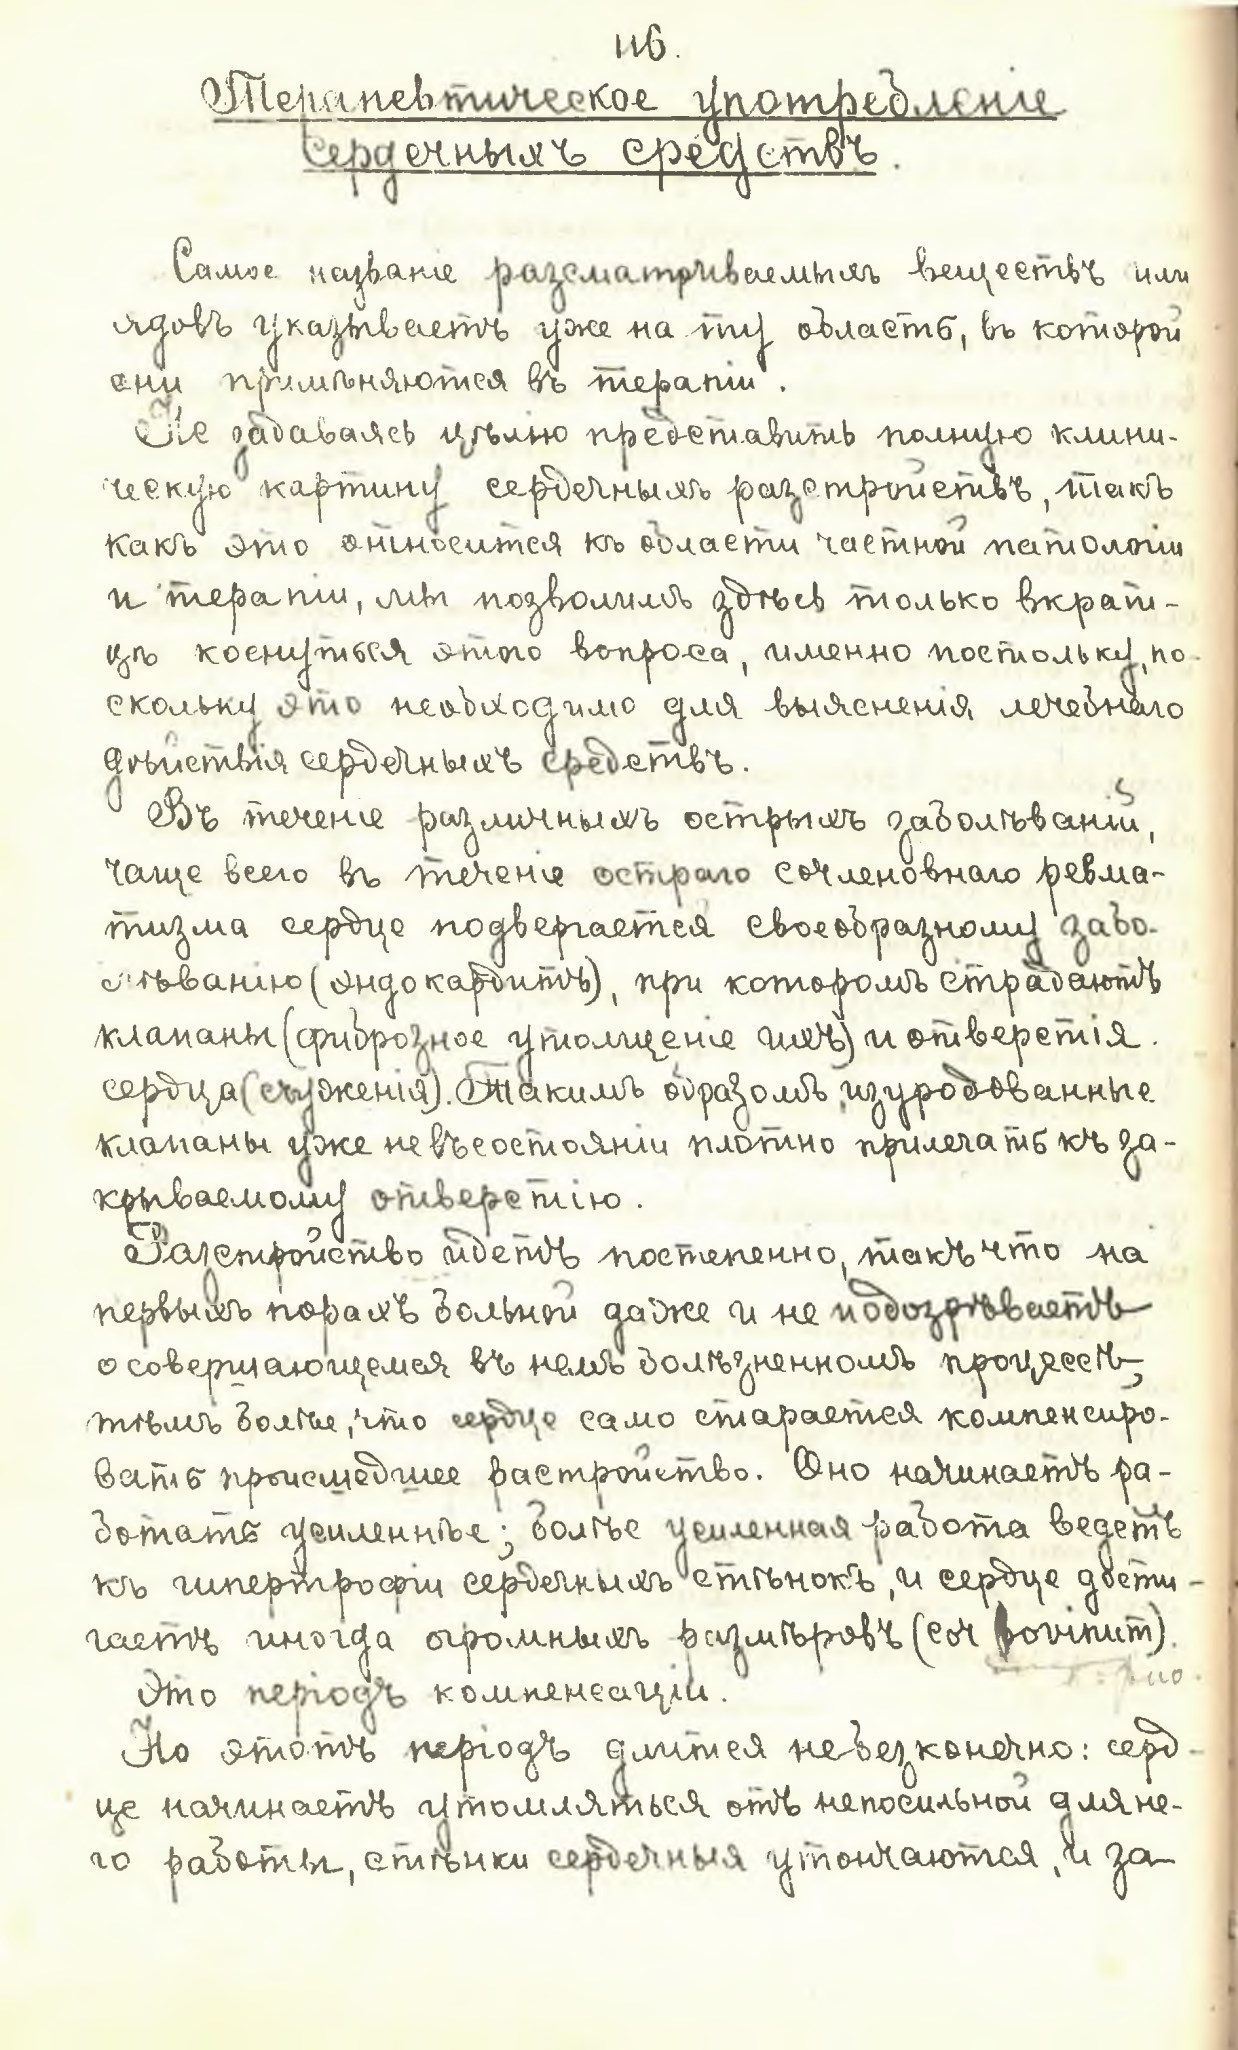 116.
Терапевтическое употребленіе
сердечныхъ средствъ.
Самое названіе разсматриваемыхъ веществъ или
ядовъ указываетъ уже на ту область, въ которой
они примѣняются въ терапіи.
Не задаваясь цѣлію представить полную клини-
ческую картину сердечныхъ разстройствъ, такъ
какъ это относится къ области частной патологіи
и терапіи, мы позволимъ здѣсь только вкрат-
цѣ коснуться этого вопроса, именно постольку, по-
скольку это необходимо для выясненія лечебнаго
дѣйствія сердечныхъ средствъ.
Въ теченіе различныхъ острыхъ заболѣваній,
чаще всего въ теченіе остраго сочленовнаго ревма-
тизма сердце подвергается своеобразному забо-
лѣванію (эндокардитъ), при которомъ страдаютъ
клапаны (фиброзное утолщеніе ихъ) и отверстія
сердца (съуженія). Такимъ образомъ, изуродованные
клапаны уже не въ состояніи плотно прилегать къ за-
крываемому отверстію.
Разстройство идетъ постепенно, такъ что на
первыхъ порахъ больной даже и не подозрѣваетъ
о совершающемся въ немъ болѣзненномъ процессѣ,
тѣмъ болѣе, что сердце само старается компенсиро-
вать происшедшее растройство. Оно начинаетъ ра-
ботать усиленнѣе; болѣе усиленная работа ведетъ
къ гипертрофіи сердечныхъ стѣнокъ, и сердце дости-
гаетъ иногда огромныхъ размѣровъ (cor bovinum).
Это періодъ компенсаціи.
Но этотъ періодъ длится не безконечно: серд-
це начинаетъ утомляться отъ непосильной для не-
го работы, стѣнки сердечныя утончаются, и за-